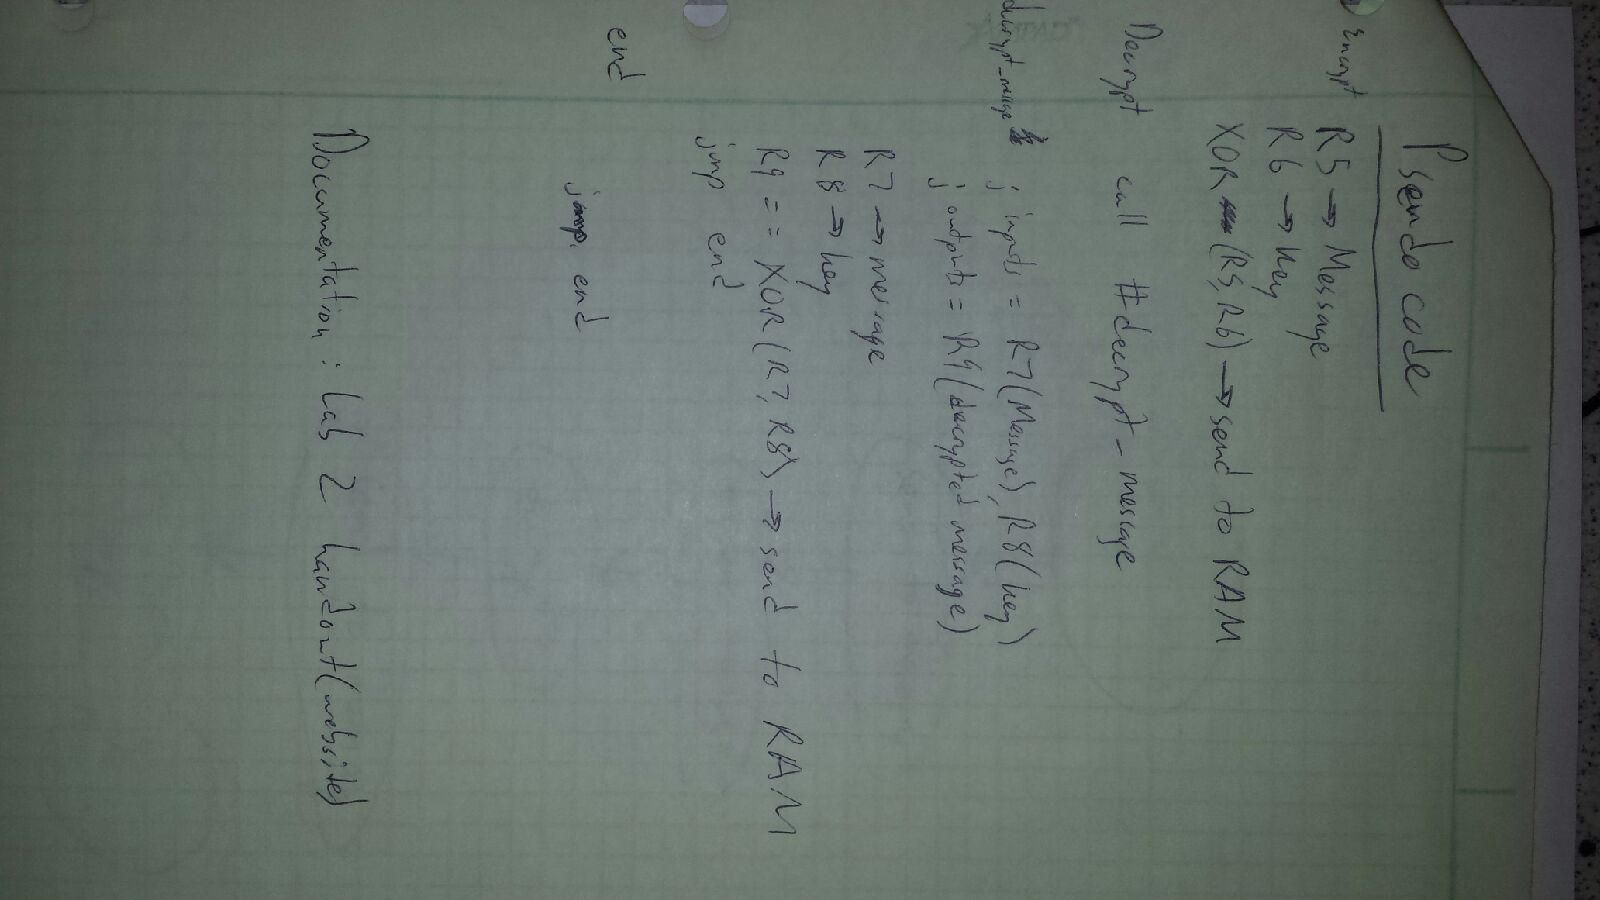 Psendo code
Encrypt R5 → Message
R6 → key
XOR (R5, R6) → send to RAM
Decrypt call #decrypt_message
decrypt_message ; inputs = R7 (Message), R8 (key)
; outputs = R9 (decrypted message)
R7 → message
R8 → key
R9 = = XOR (R7, R8) → send to RAM
jmp end
end
jmp end
Documentation : lab 2 handout (website)